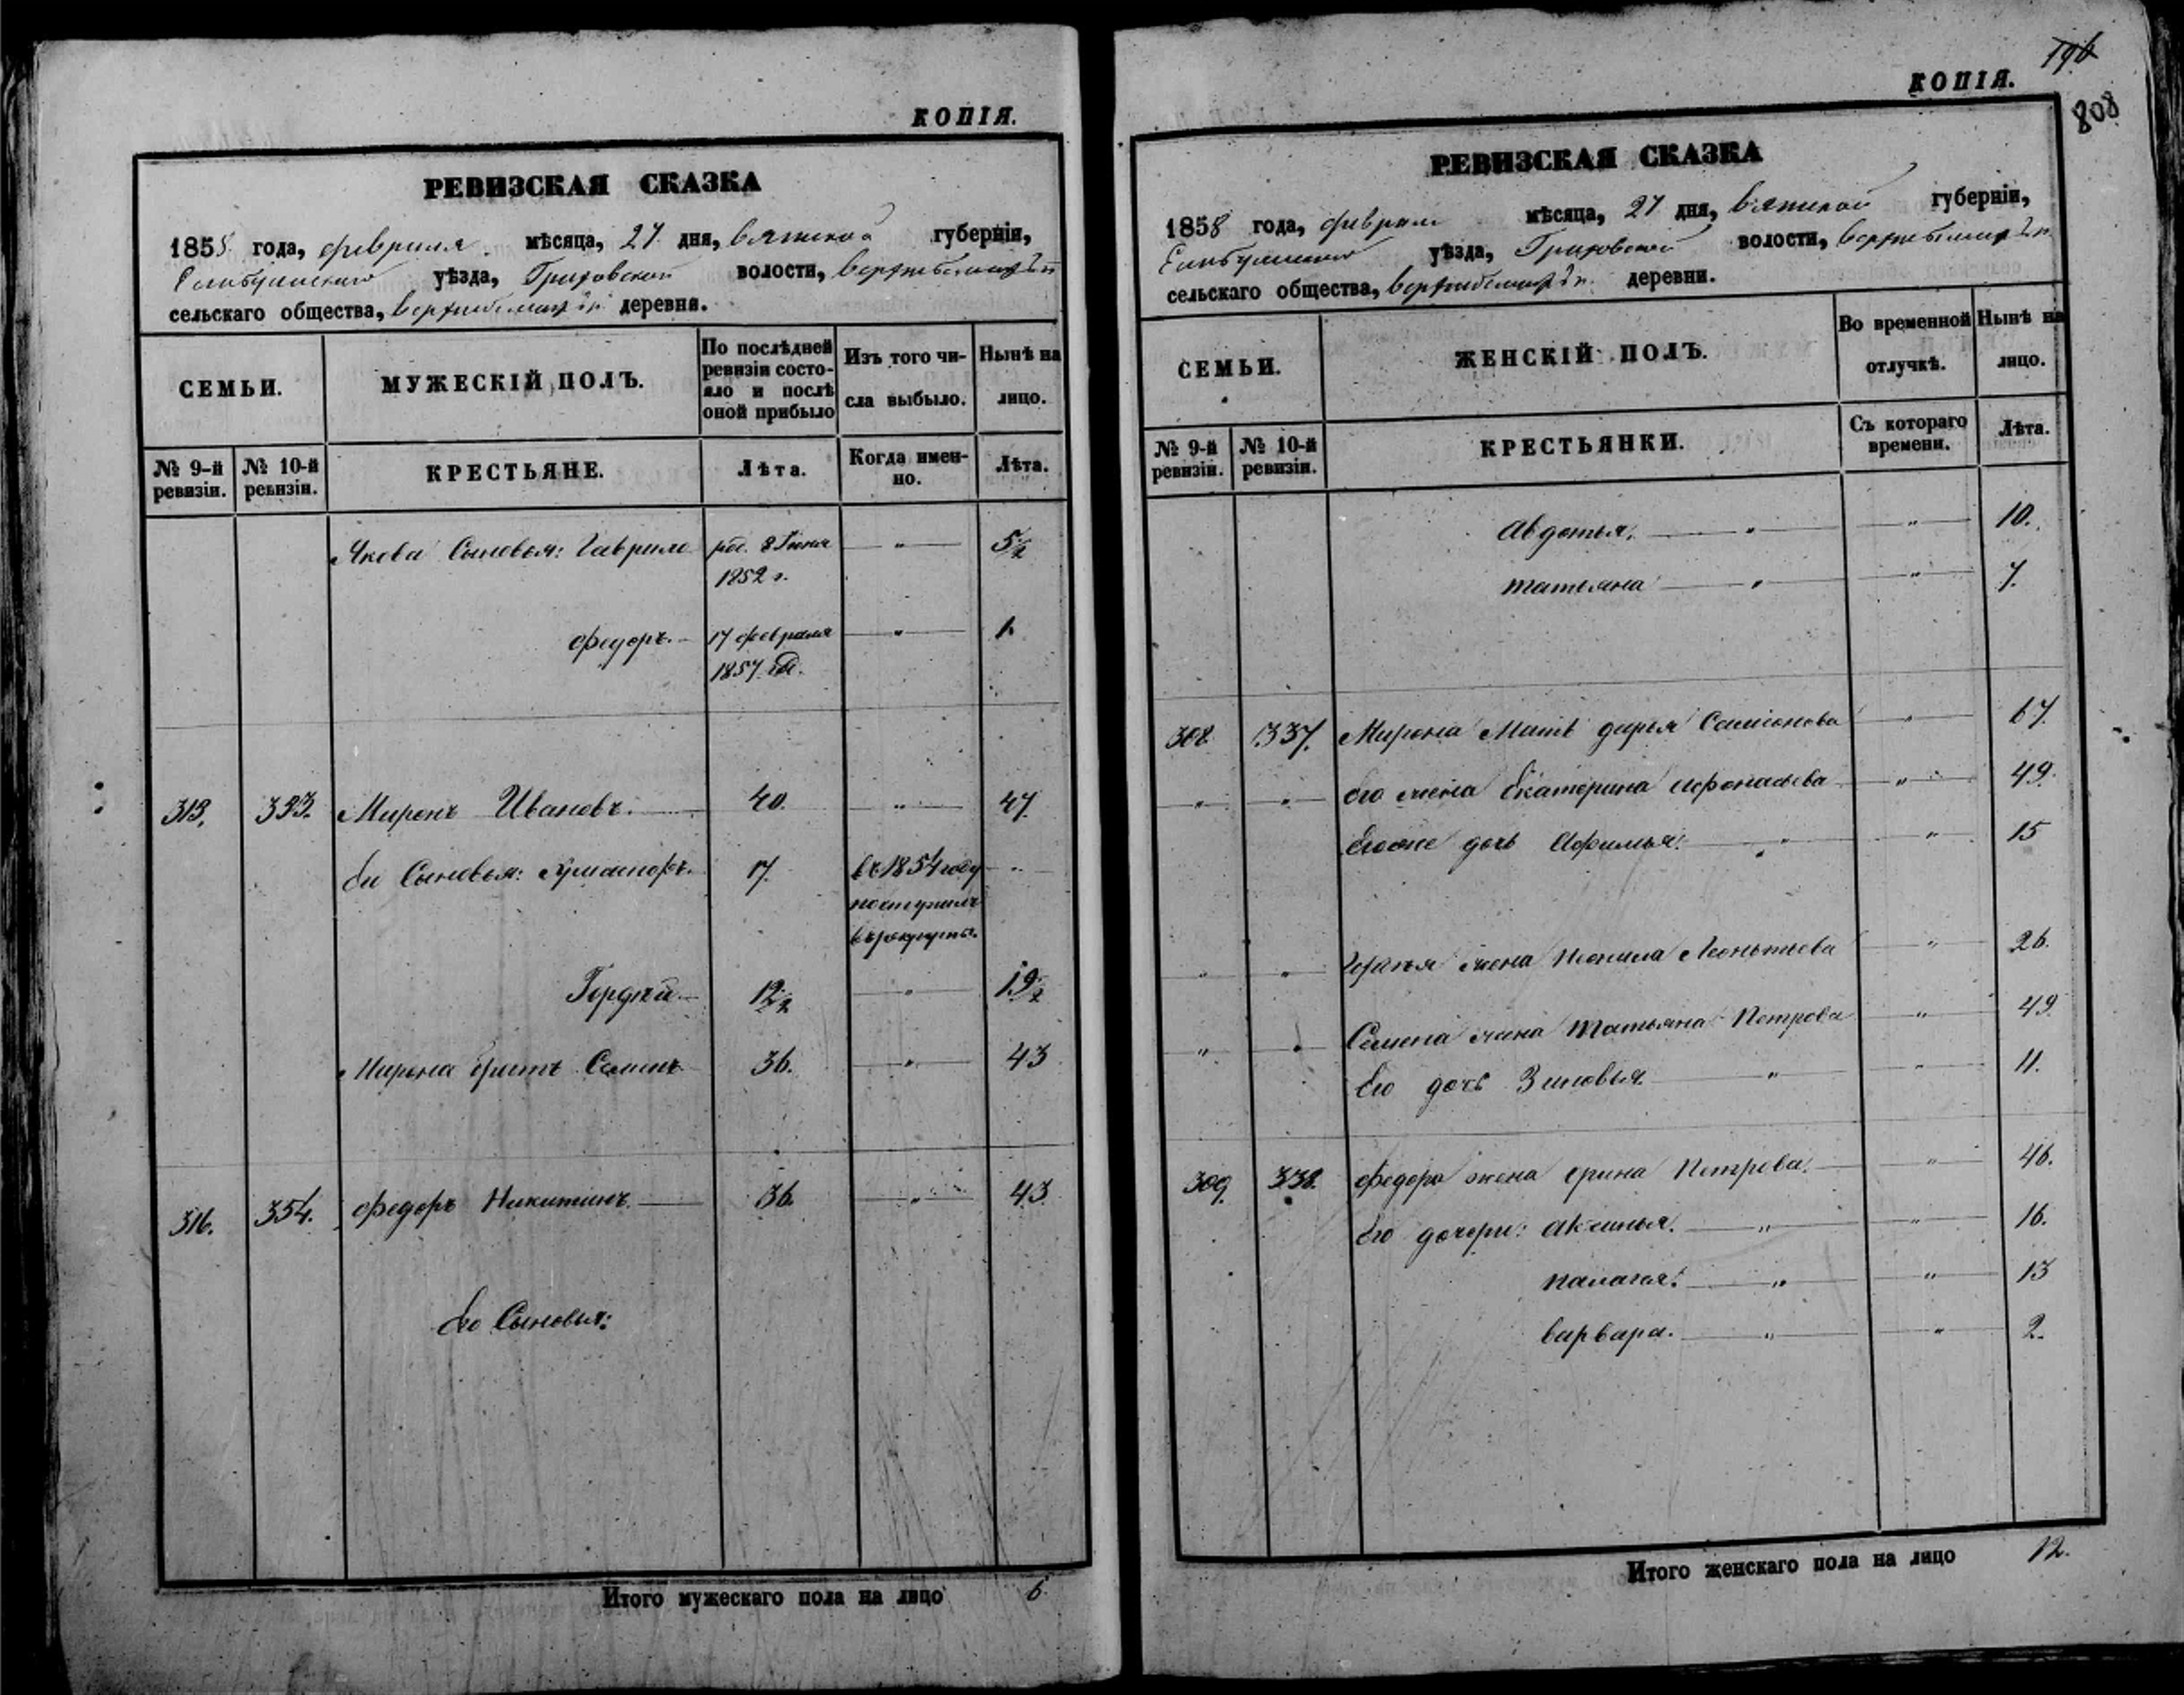 КОПІЯ.
РЕВИЗСКАЯ СКАЗКА
1858 года, февраля мѣсяца, 27 дня, Вятской губерніи,
уѣзда, волости,
сельскаго общества, деревни.
СЕМЬИ.
МУЖЕСКІЙ ПОЛЪ.
По послѣдней ревизіи состояло и послѣ оной прибыло
Изъ того числа выбыло.
Нынѣ на лицо.
№ 9-й ревизіи.
№ 10-й ревизіи.
КРЕСТЬЯНЕ.
Лѣта.
Когда именно.
Лѣта.
Якова Сыновья: Гаврило род. 8 Іюня — " — 5 1/2
1852 г.
Федоръ. 17 февраля — " — 1.
1857 год.
313. Миронъ Ивановъ. 40. — " — 47.
Сыновья: 17. въ 1854 году "
поступилъ
въ рекруты.
Гордѣй 12 1/2 — " — 19 1/2
Мирона братъ Семенъ 36. — " — 43
316. 354. Федоръ Никитинъ. 36. — " — 43.
Его Сыновья:
Итого мужескаго пола на лицо 6
196
КОПІЯ.
808
РЕВИЗСКАЯ СКАЗКА
1858 года, февраля мѣсяца, 27 дня, Вятской губерніи,
уѣзда, волости,
сельскаго общества, деревни.
СЕМЬИ.
ЖЕНСКІЙ ПОЛЪ.
Во временной отлучкѣ.
Нынѣ на лицо.
№ 9-й ревизіи.
№ 10-й ревизіи.
КРЕСТЬЯНКИ.
Съ котораго времени.
Лѣта.
Авдотья. — " — " — 10.
Татьяна — " — " — 7.
308. 337. Мирона Мать Дарья — " — 67.
" " его жена Екатерина Афонасьева — " — 49.
Егоже дочь Афимья. — " — " — 15
" " жена Леонтьева — " — 26.
" " Семена жена Татьяна Петрова — " — 49
Его дочь Зиновья. — " — " — 11.
309. 338. Федора жена Ерина Петрова. — " — 46.
Его дочери: Аксинья. — " — " — 16.
Палагея. — " — " — 13
Варвара. — " — " — 2.
Итого женскаго пола на лицо 12.